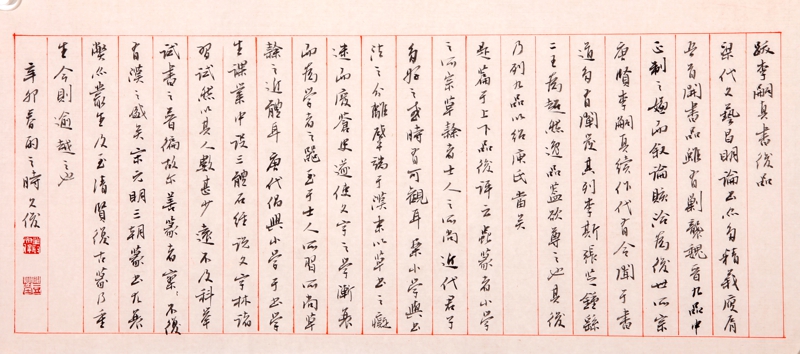 跋李嗣真書後品
梁代文藝昌明論書亦自精義庾肩
吾首開書品雖有剿襲魏晋九品中
正制之嫌而叙論賅洽為後世所宗
唐賢李嗣真續作代有令聞于書
道多有闡發其列李斯張芝鍾繇
二王為超然逸品蓋欲尊之也其後
乃列九品以紹庾氏當矣
是篇于上下品後評云蟲篆者小學
之所宗草隸者士人之所尚近代君子
多好之或時有可觀耳案小學與書
法之分離肇端于漢末以草書之癡
迷而廢蒼史遂使文字之學漸衰
而為學者之 至于士人所習所尚草
隸之近體耳唐代倡興小學于書學
生課業中設三體石經說文字林諸
習試然以其人數甚少遠不及科舉
試書之普徧故尔善篆者寥〻不復
有漢之盛矣宋元明三朝篆書尤衰
獘亦叢生及至清賢復古篆乃重
生今則逾越之也
辛卯春 之時文俊